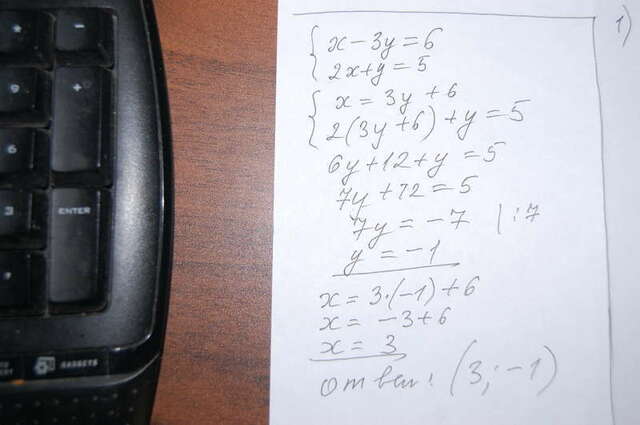 ENTER
GADGETS
1)
x - 3y = 6
2x + y = 5
x = 3y + 6
2(3y + 6) + y = 5
6y + 12 + y = 5
7y + 12 = 5
7y = -7 | :7
y = -1
x = 3·(-1) + 6
x = -3 + 6
x = 3
ответ: (3; -1)